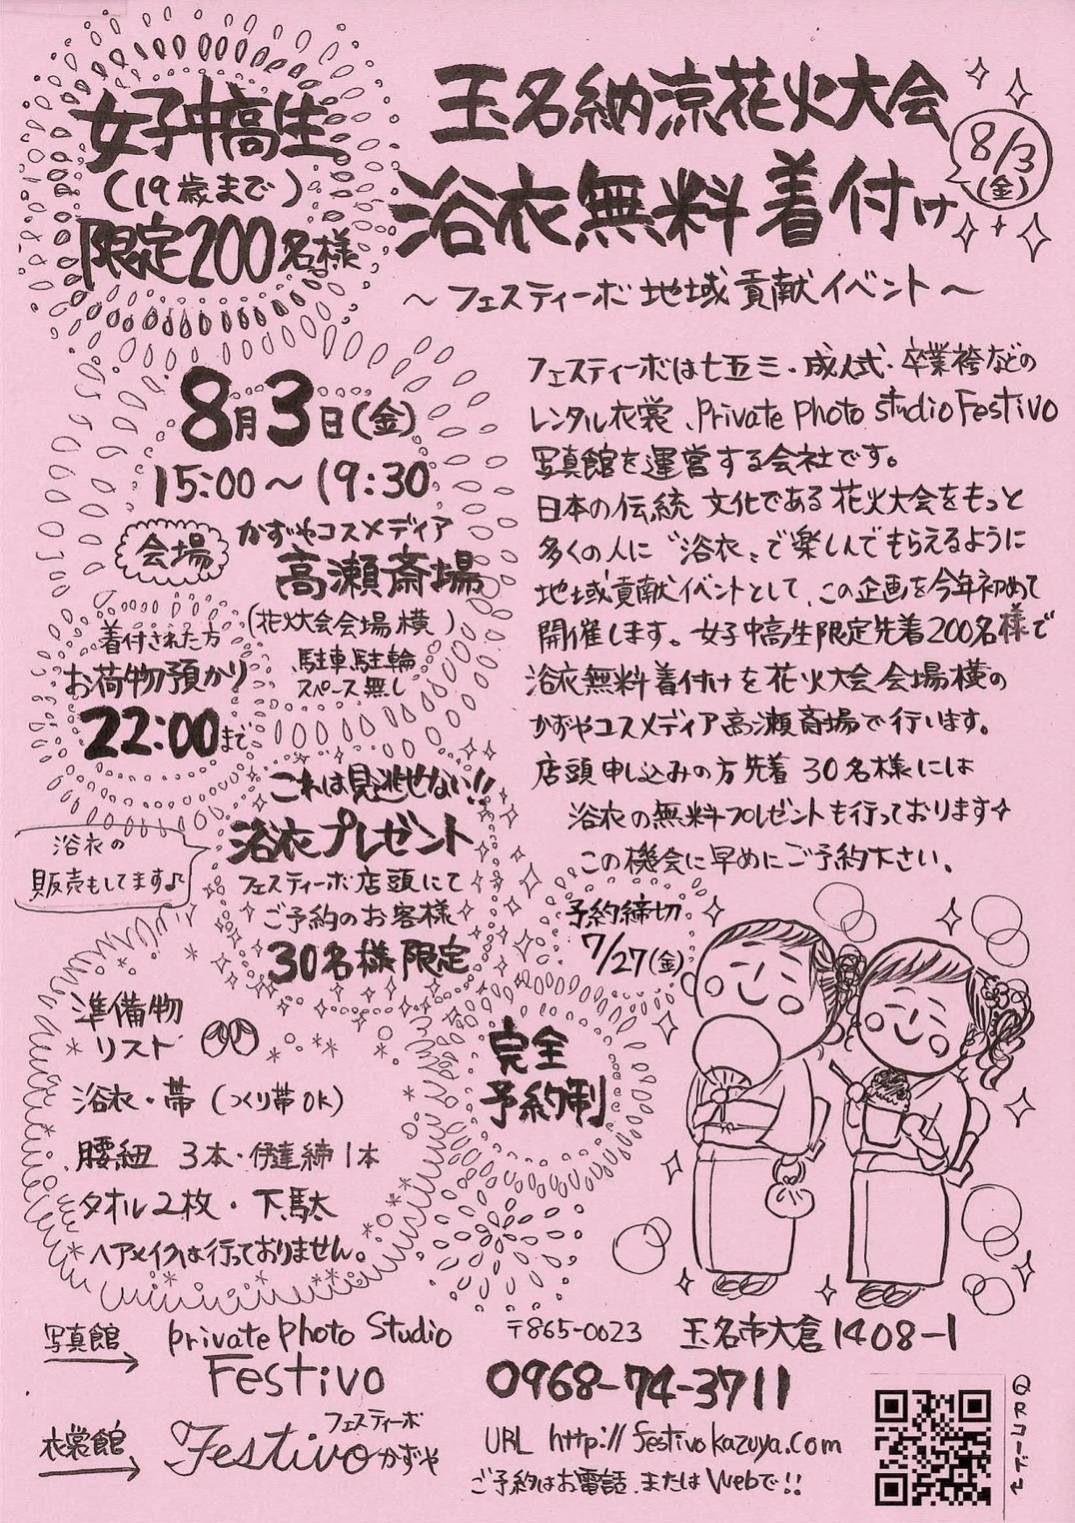 女子中高生
(19歳まで)
限定200名様
玉名納涼花火大会
8/3
(金)
浴衣無料着付け
～フェスティーボ地域貢献イベント～
8月3日(金)
15:00～19:30
会場
かずやコスメディア
高瀬斎場
(花火大会会場横)
駐車駐輪
スペース無し
着付された方
お荷物預かり
22:00まで
これは見逃せない!!
浴衣プレゼント
フェスティーボ店頭にて
ご予約のお客様
30名様限定
浴衣の
販売もしてます♪
フェスティーボは七五三・成人式・卒業袴などの
レンタル衣裳、Private Photo Studio Festivo
写真館を運営する会社です。
日本の伝統文化である花火大会をもっと
多くの人に“浴衣”で楽しんでもらえるように
地域貢献イベントとして、この企画を今年初めて
開催します。女子中高生限定先着200名様で
浴衣無料着付けを花火大会会場横の
かずやコスメディア高瀬斎場で行います。
店頭申し込みの方先着30名様には
浴衣の無料プレゼントも行っております✧
この機会に早めにご予約下さい、
予約締切
7/27(金)
完全
予約制
準備物
リスト
浴衣・帯(つくり帯OK)
腰紐 3本・伊達締1本
タオル2枚・下駄
*ヘアメイクは行っておりません。
写真館
Private Photo Studio
Festivo
〒865-0023 玉名市大倉1408-1
0968-74-3711
衣裳館
フェスティーボ
Festivoかずや
URL http://festivokazuya.com
ご予約はお電話、またはWebで!!
QRコード